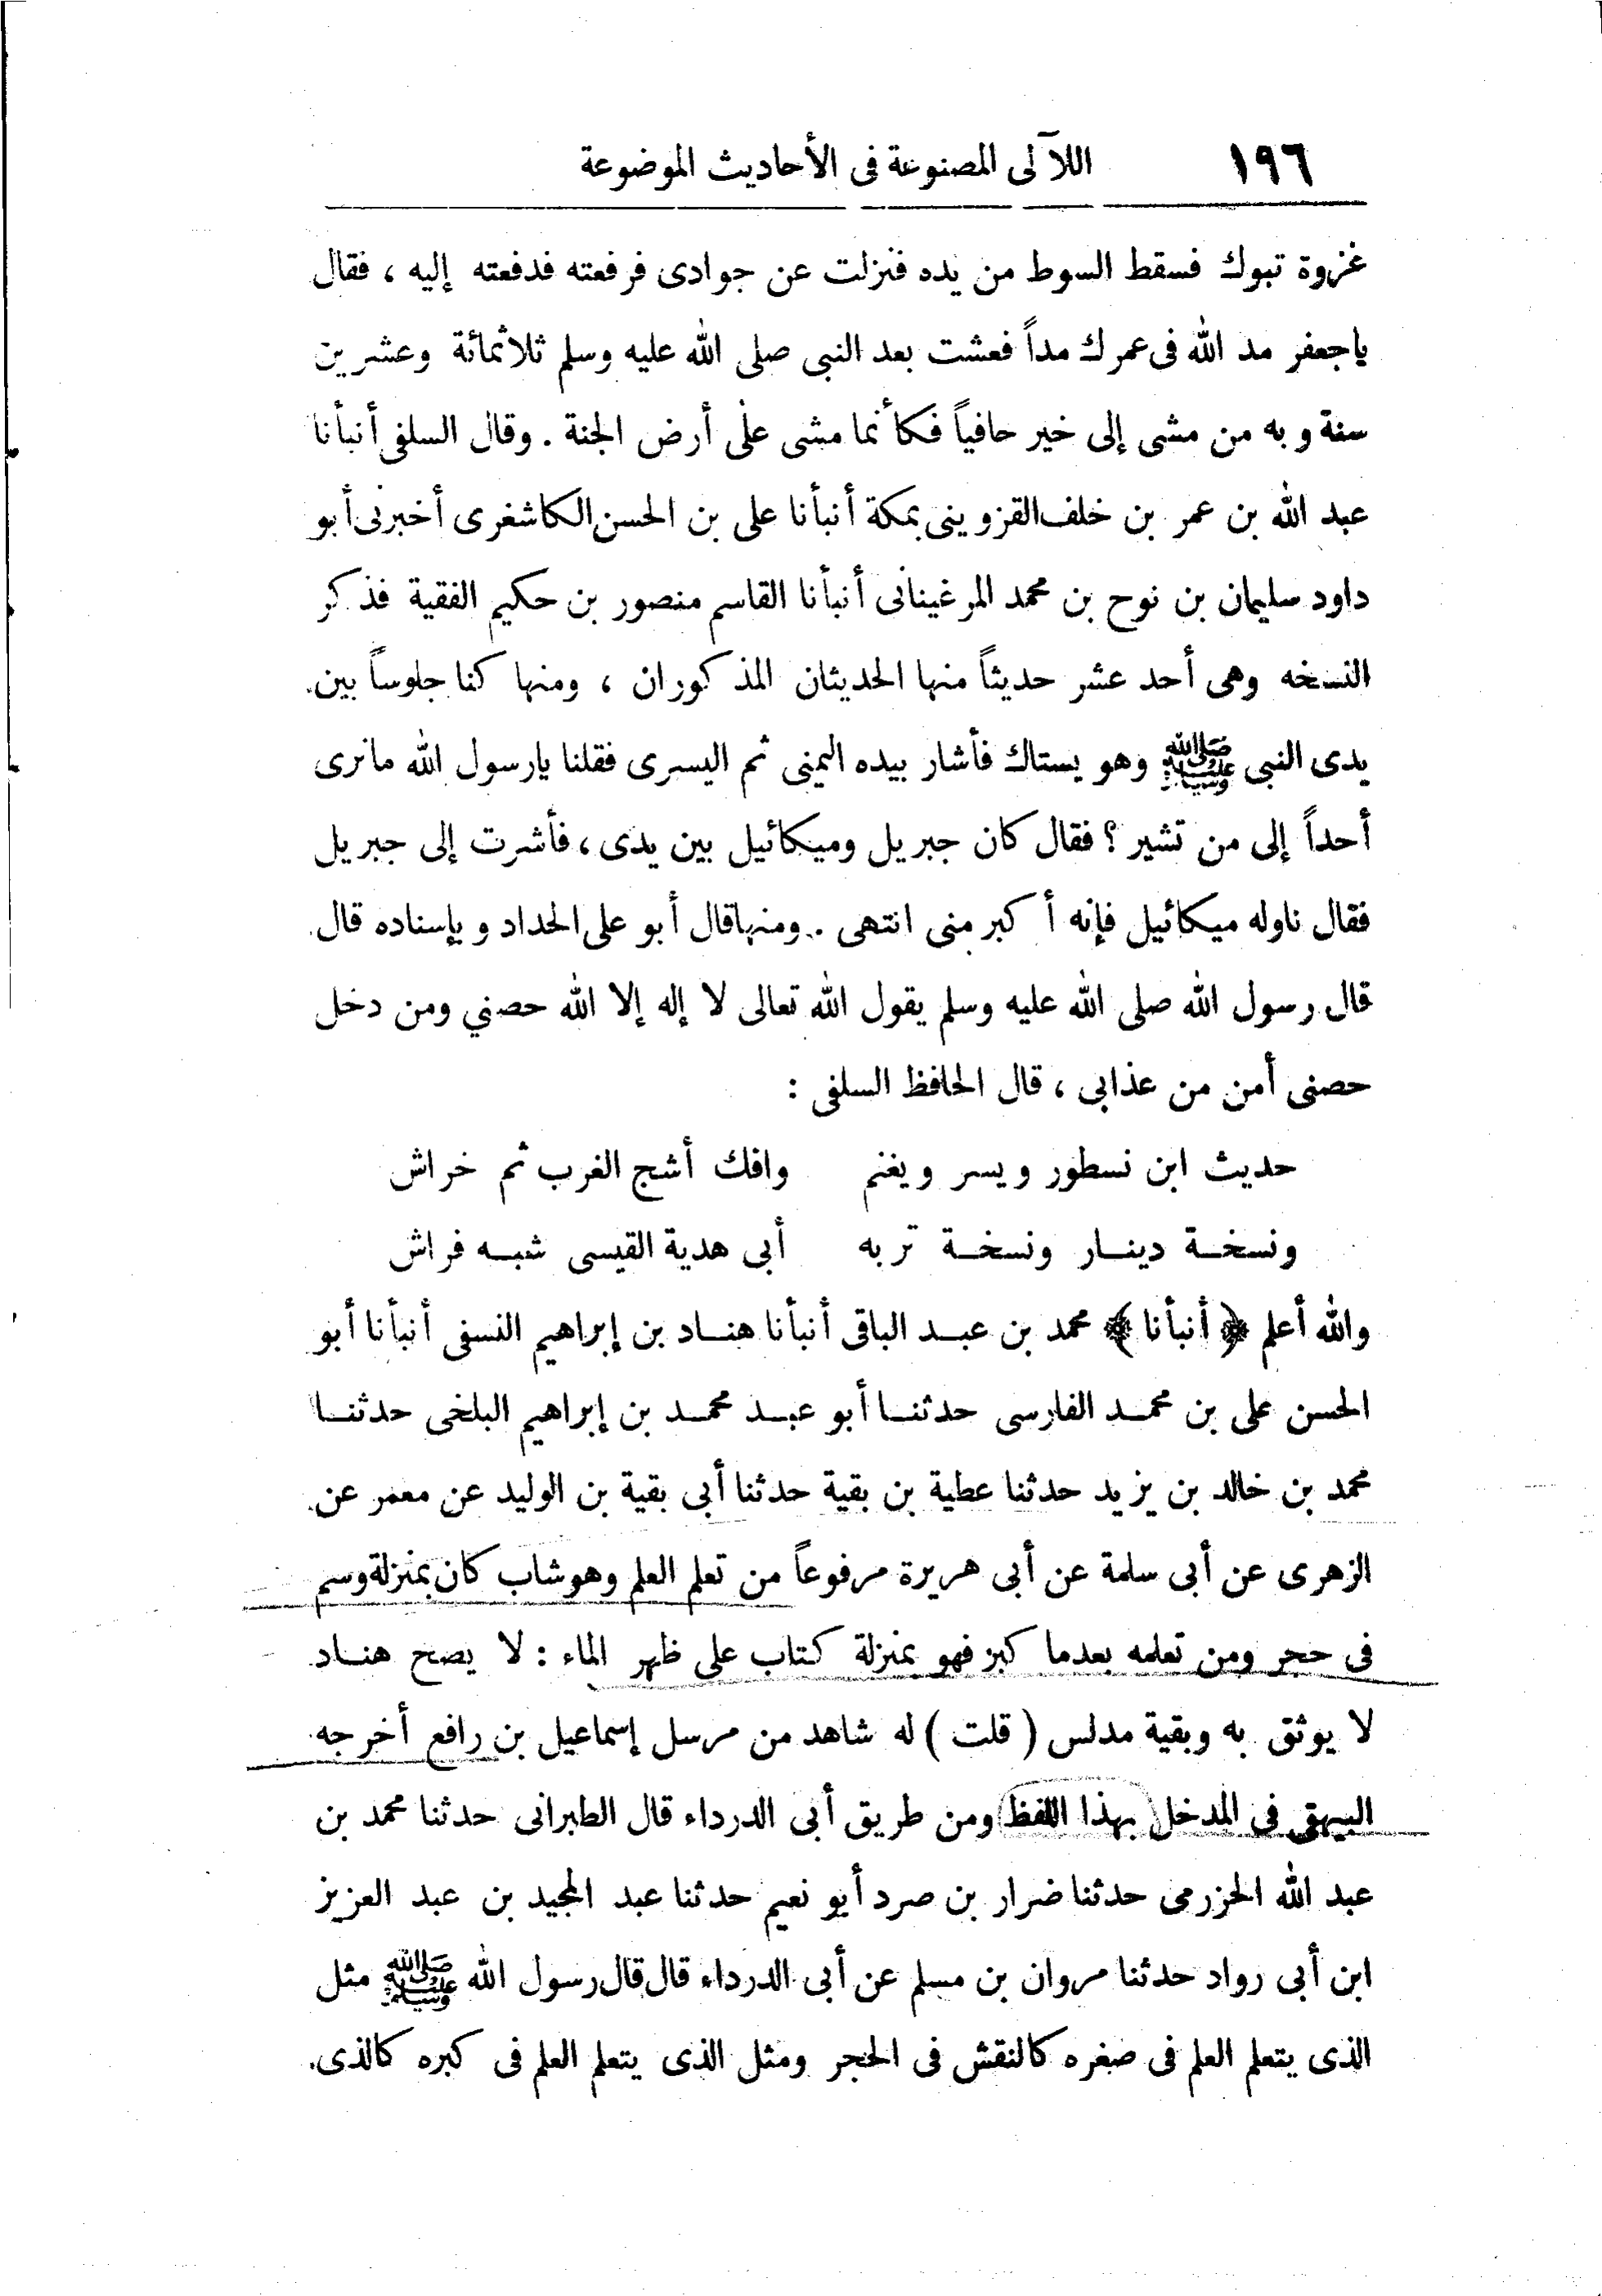 ١٩٦ اللآلى المصنوعة فى الأحاديث الموضوعة
غزوة تبوك فسقط السوط من يده فنزلت عن جوادى فرفعته فدفعته إليه ، فقال
ياجعفر مد الله فى عمرك مداً فعشت بعد النبى صلى الله عليه وسلم ثلاثمائة وعشرين
سنة وبه من مشى إلى خير حافياً فكأنما مشى على أرض الجنة . وقال السلفى أنبأنا
عبد الله بن عمر بن خلف القزوينى بمكة أنبأنا على بن الحسن الكاشغرى أخبرنى أبو
داود سليمان بن نوح بن محمد المرغينانى أنبأنا القاسم منصور بن حكيم الفقية فذكر
النسخه وهى أحد عشر حديثاً منها الحديثان المذكوران ، ومنها كنا جلوساً بين
يدى النبى ﷺ وهو يستاك فأشار بيده اليمنى ثم اليسرى فقلنا يارسول الله مانرى
أحداً إلى من تشير ؟ فقال كان جبريل وميكائيل بين يدى ، فأشرت إلى جبريل
فقال ناوله ميكائيل فإنه أكبر منى انتهى . ومنهاقال أبو على الحداد وبإسناده قال
قال رسول الله صلى الله عليه وسلم يقول الله تعالى لا إله إلا الله حصني ومن دخل
حصنى أمن من عذابى ، قال الحافظ السلفى :
حديث ابن نسطور ويسر ويغنم وافك أشج الغرب ثم خراش
ونسخة دينار ونسخة تربه أبى هدية القيسى شبه فراش
والله أعلم ﴿ أنبأنا ﴾ محمد بن عبد الباقى أنبأنا هناد بن إبراهيم النسفى أنبأنا أبو
الحسن على بن محمد الفارسى حدثنا أبو عبد محمد بن إبراهيم البلخى حدثنا
محمد بن خالد بن يزيد حدثنا عطية بن بقية حدثنا أبى بقية بن الوليد عن معمر عن
الزهرى عن أبى سلمة عن أبى هريرة مرفوعاً من تعلم العلم وهوشاب كان بمنزلة وسم
فى حجر ومن تعلمه بعدما كبر فهو بمنزلة كتاب على ظهر الماء : لا يصح هناد
لا يوثق به وبقية مدلس ( قلت ) له شاهد من مرسل إسماعيل بن رافع أخرجه
البيهقى فى المدخل بهذا اللفظ ومن طريق أبى الدرداء قال الطبرانى حدثنا محمد بن
عبد الله الحزرمى حدثنا ضرار بن صرد أبو نعيم حدثنا عبد المجيد بن عبد العزيز
ابن أبى رواد حدثنا مروان بن مسلم عن أبى الدرداء قال قال رسول الله ﷺ مثل
الذى يتعلم العلم فى صغره كالنقش فى الحجر ومثل الذى يتعلم العلم فى كبره كالذى